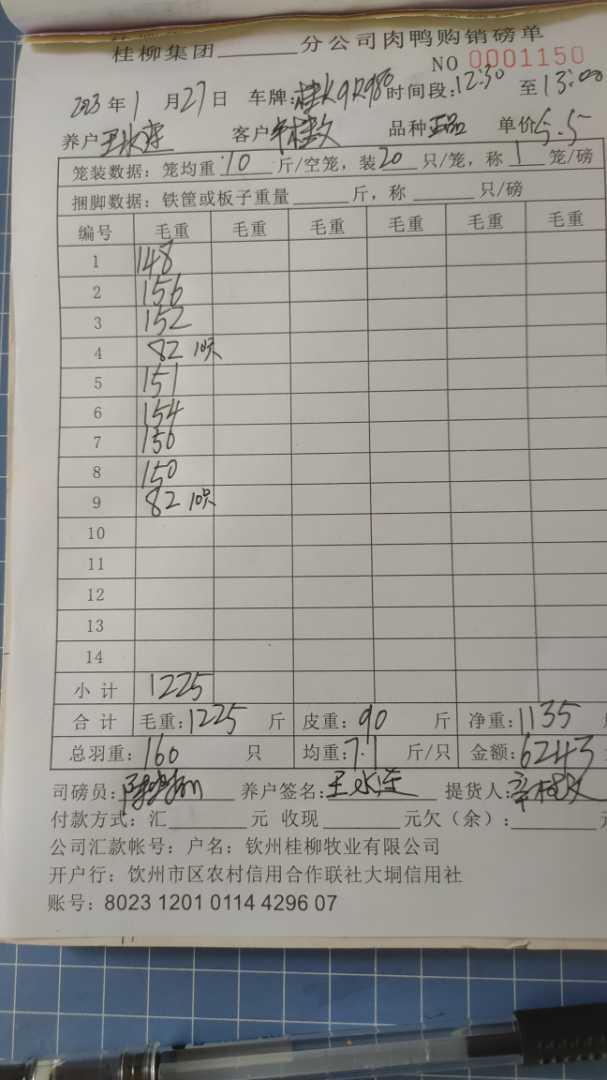 桂柳集团______分公司肉鸭购销磅单
NO 0001150
2023年1月27日 车牌: 时间段:12:30至13:00
养户 客户 品种正品 单价5.5
笼装数据：笼均重10斤/空笼，装20只/笼，称1笼/磅
捆脚数据：铁筐或板子重量______斤，称______只/磅
编号 毛重 毛重 毛重 毛重 毛重 毛重
1 148
2 156
3 152
4 82 10只
5 151
6 154
7 150
8 150
9 82 10只
10
11
12
13
14
小计 1225
合计 毛重:1225斤 皮重:90斤 净重:1135
总羽重:160只 均重:7.1斤/只 金额:6243
司磅员: 养户签名: 提货人:
付款方式：汇______元 收现______元欠（余）:______
公司汇款帐号：户名：钦州桂柳牧业有限公司
开户行：饮州市区农村信用合作联社大垌信用社
账号：8023 1201 0114 4296 07